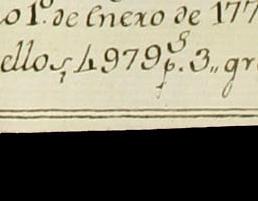 o 1º. de Enero de 177
ellos, 4979 p.s 3,, gr